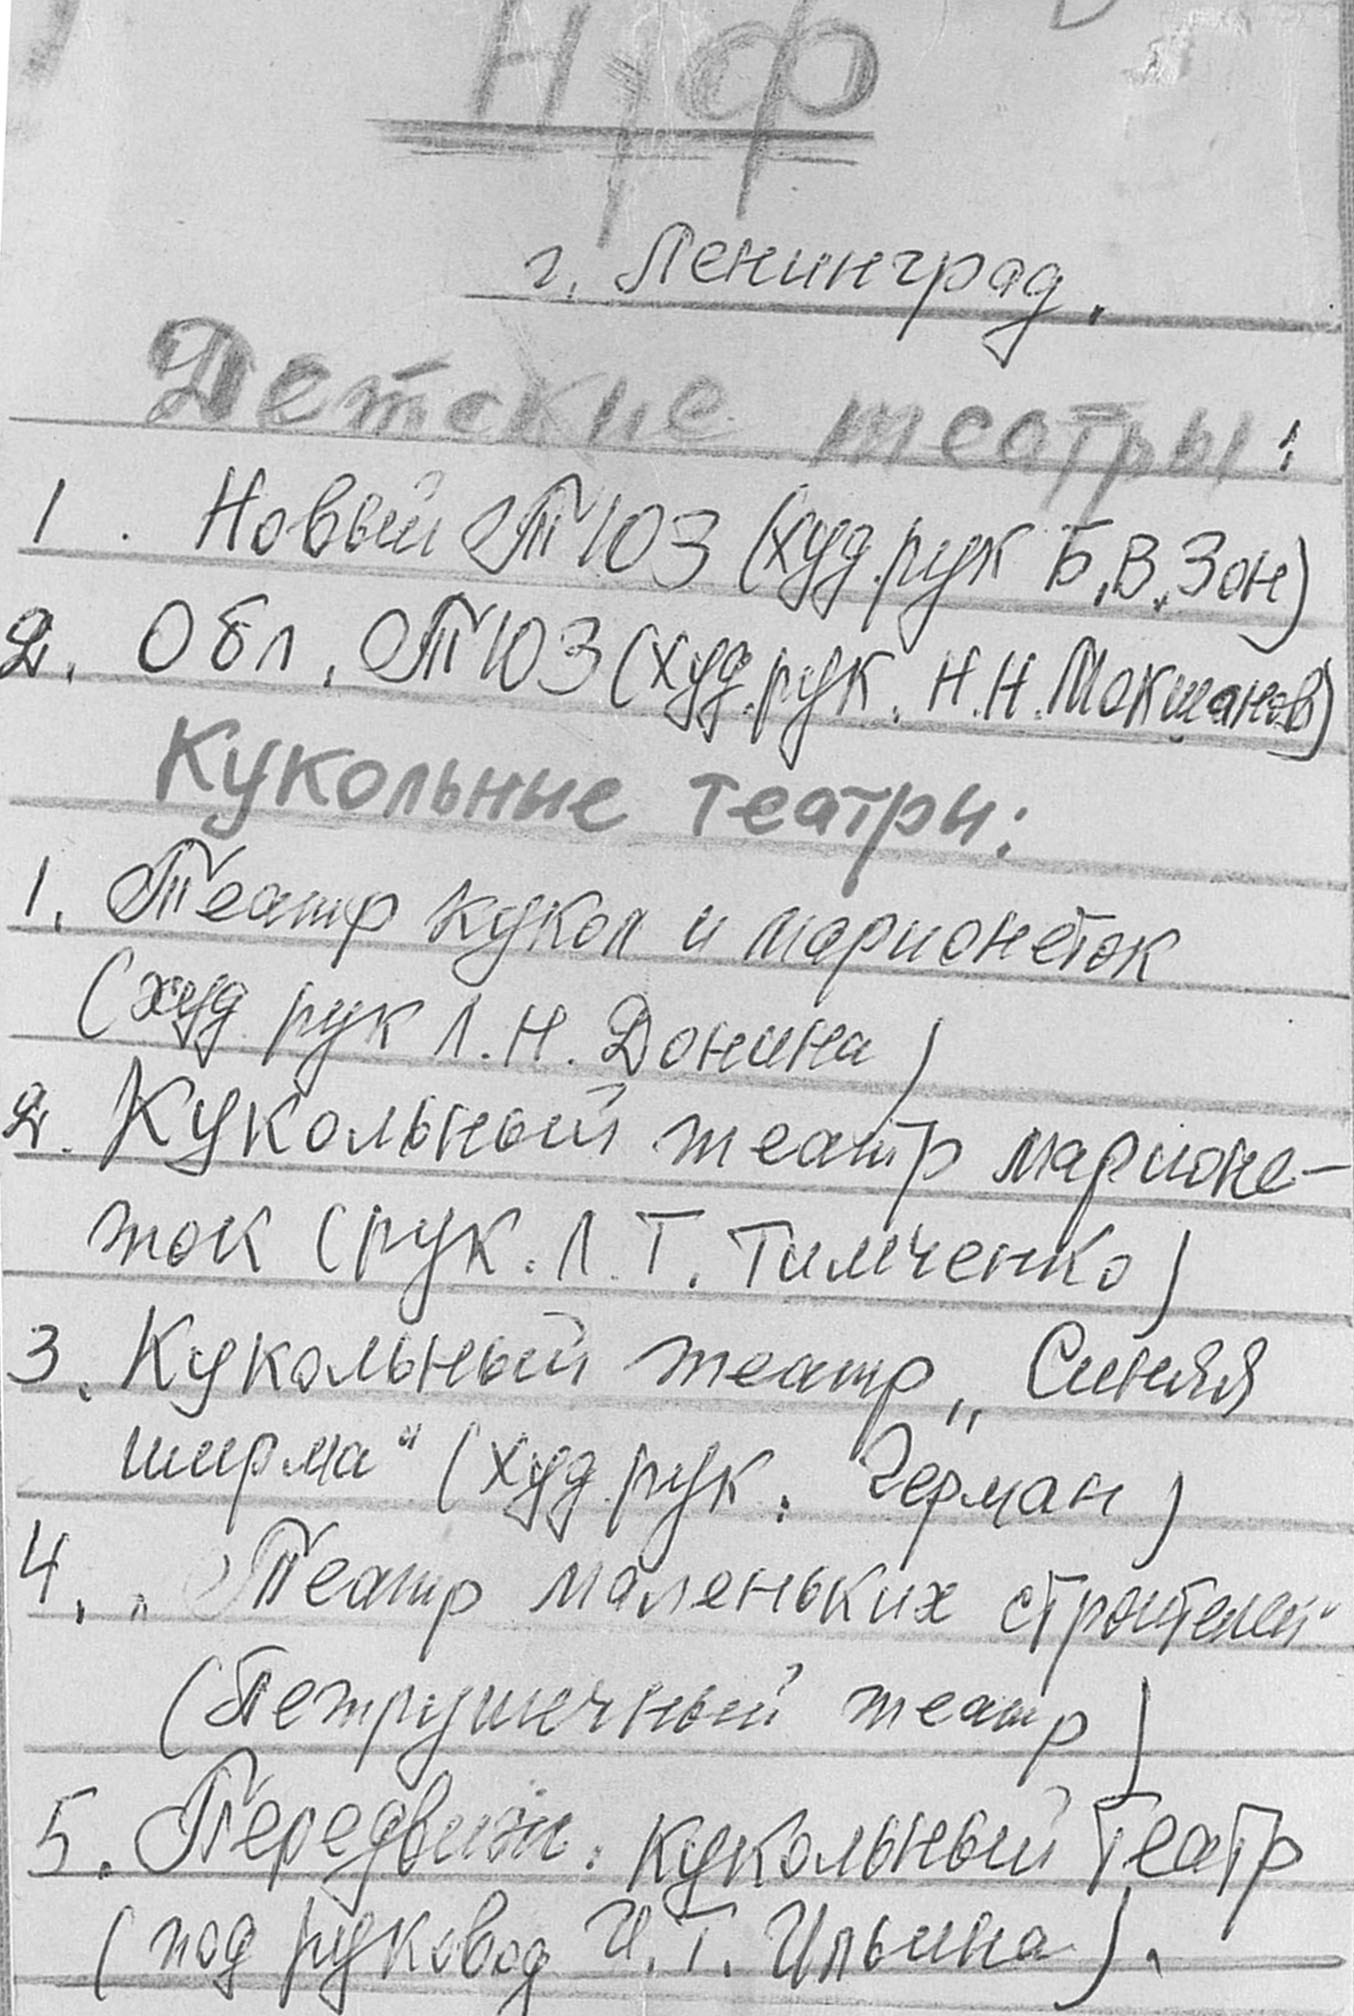 Н/Ф
г. Ленинград.
Детские театры:
1. Новый ТЮЗ (худ.рук Б.В.Зон)
2. Обл. ТЮЗ (худ.рук. Н.Н.Мокшанов)
Кукольные театры:
1. Театр кукол и марионеток
(худ рук Л.Н. Донина)
2. Кукольный театр марионе-
ток (рук. Л.Т. Тимченко)
3. Кукольный театр „Синяя
ширма" (худ.рук. Герман)
4. „Театр маленьких строителей"
(Петрушечный театр)
5. Передвижн. кукольный театр
(под руковод И.Г. Ильина).